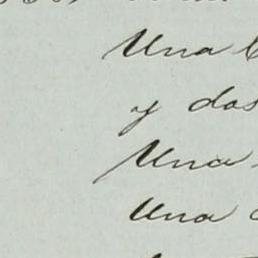 Una
y dos
Una
Una